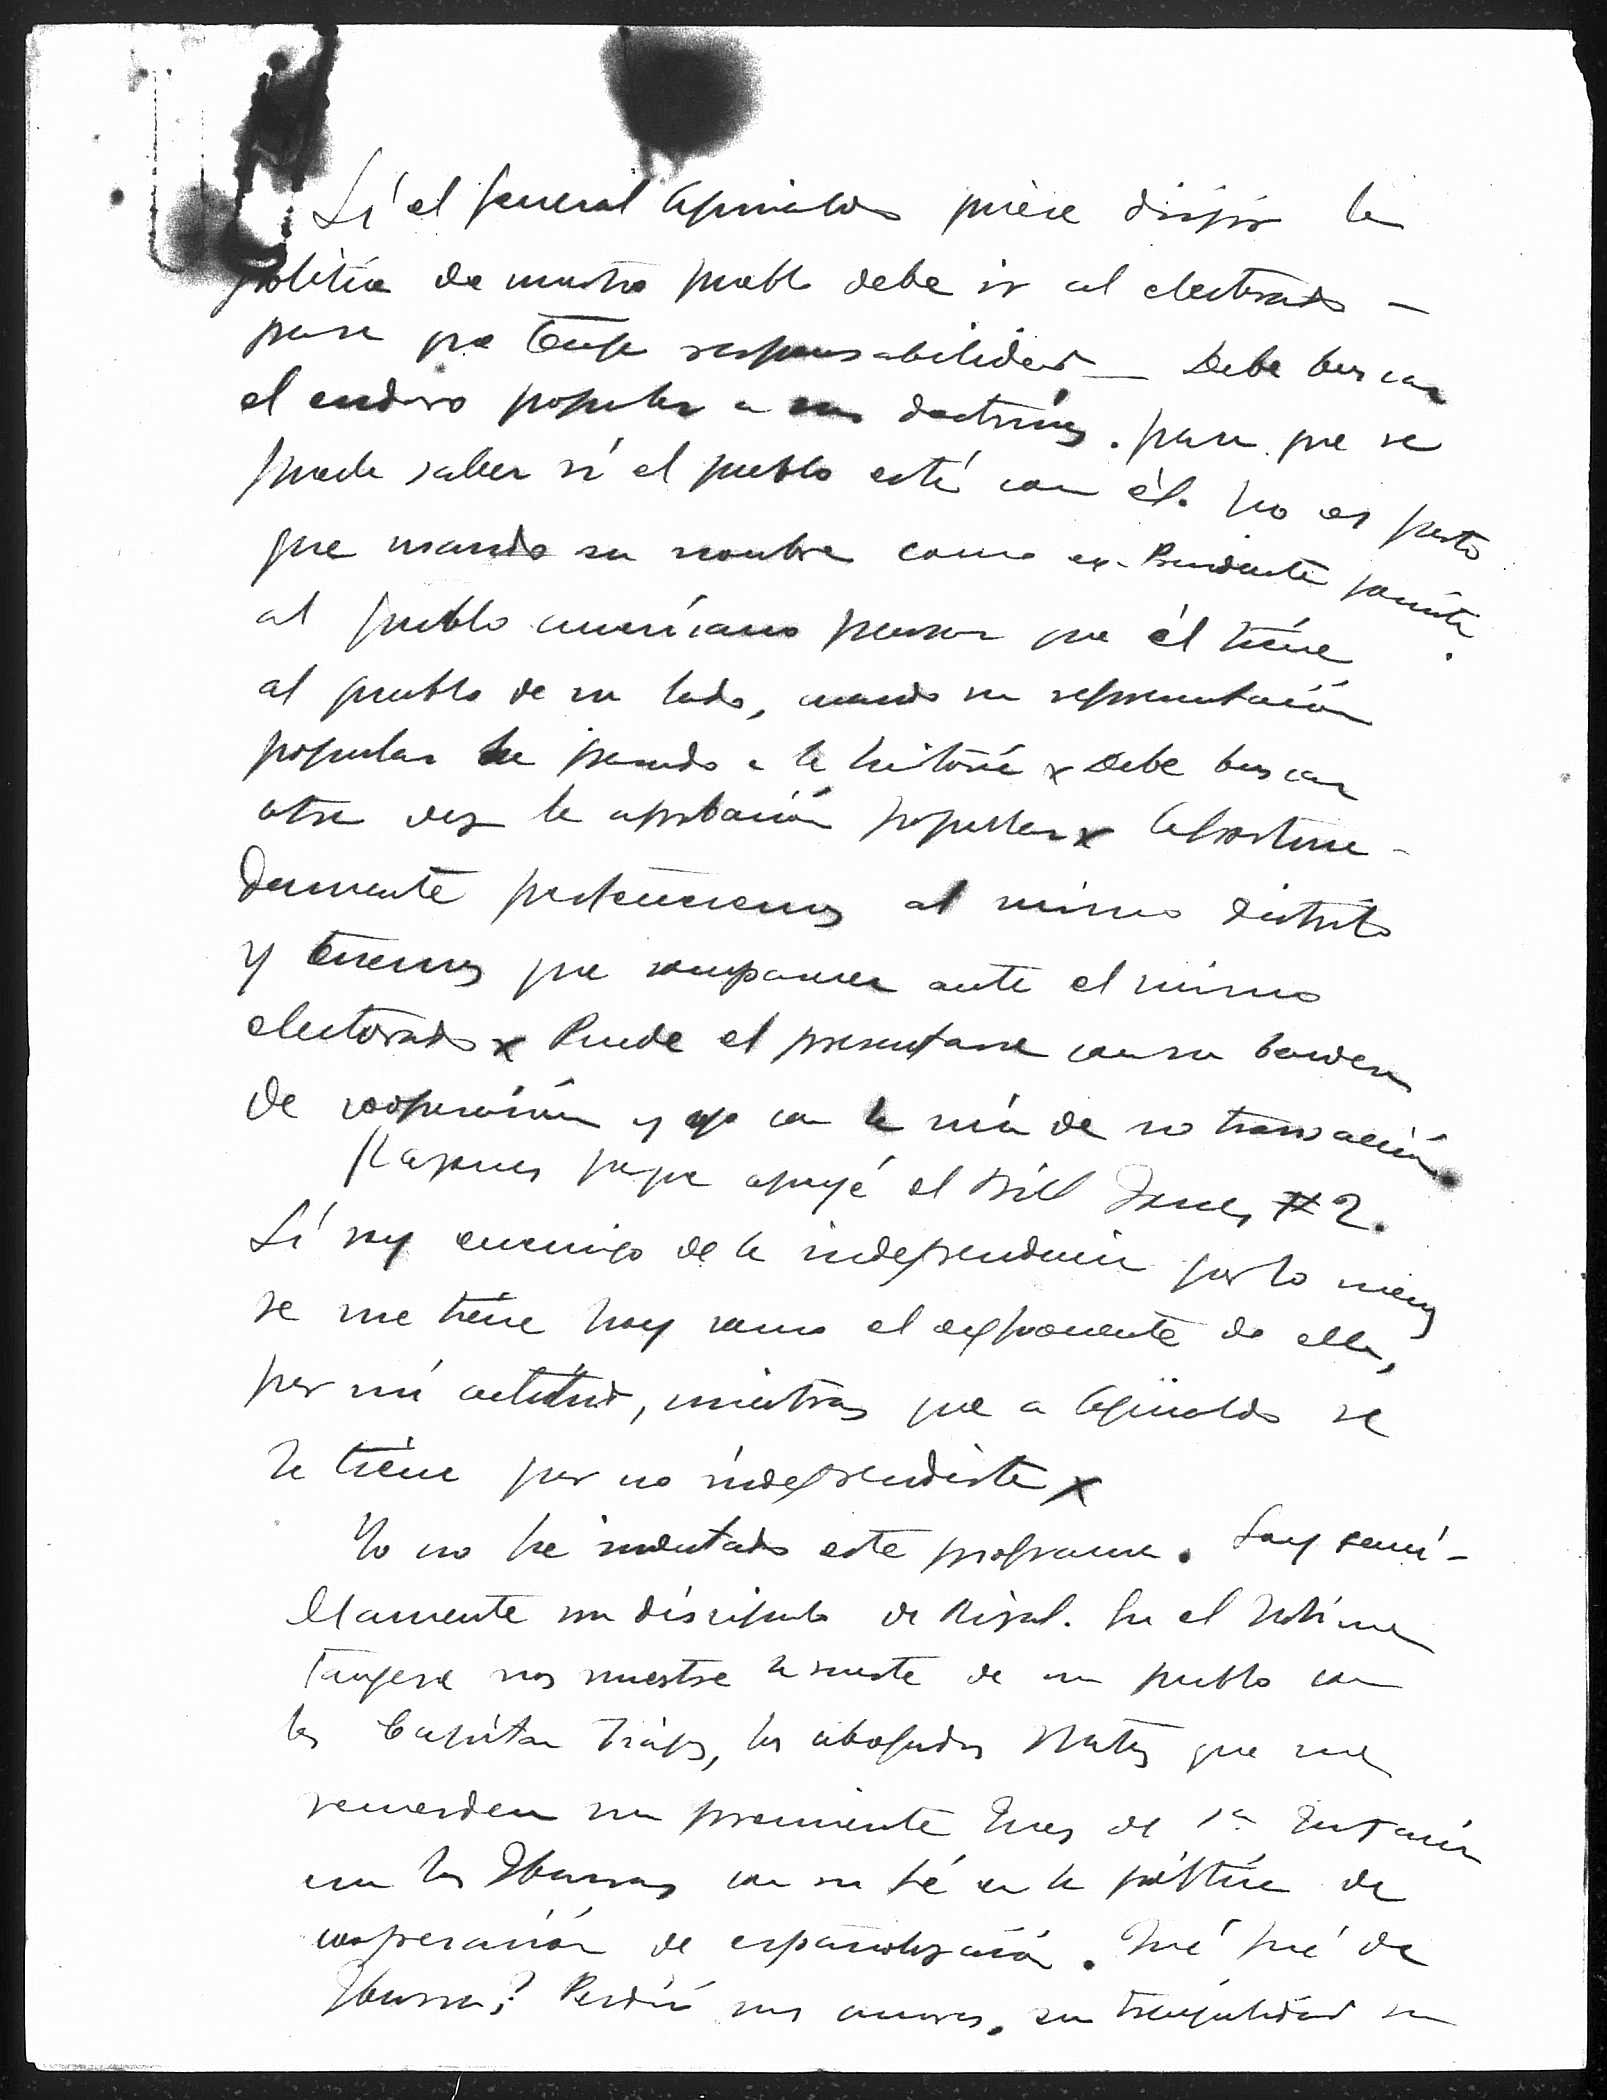 Sí el General Aguinaldo quiere dirigir la
politica de nuestro pueblo debe ir al electorado —
para que tenga responsabilidad — Debe buscar
el endoso popular a sus doctrinas. para que se
pueda saber si el pueblo está con él. No es justo
que usando su nombre como ex-Presidente permita
al pueblo americano pensar que él tiene
al pueblo de su lado, cuando su representación
popular ha pasado a la historia x Debe buscar
otra vez la aprobación popular x Afortuna-
damente pertenecemos al mismo distrito
y tenemos que comparecer ante el mismo
electorado x Puede el presentarse con su bandera
de cooperación y yo con la mia de no transacción
Razones porque apoyé el Bill Jones #2.
Sí soy enemigo de la independencia por lo menos
se me tiene hoy como el exponente de ella,
por mi actitud, mientras que a Aguinaldo se
le tiene por no independista x
Yo no he inventado este programa. Soy senci-
llamente un discipulo de Rizal. En el Noli me
tangere nos muestra la suerte de un pueblo con
los Capitan Tiago, los abogados que me
recuerdan un prominente Juez de 1a Instancia
con los Ibarras con su fé en la política de
cooperación de españolización. Qué fué de
Ibarra? Perdió sus amores, su tranquilidad su